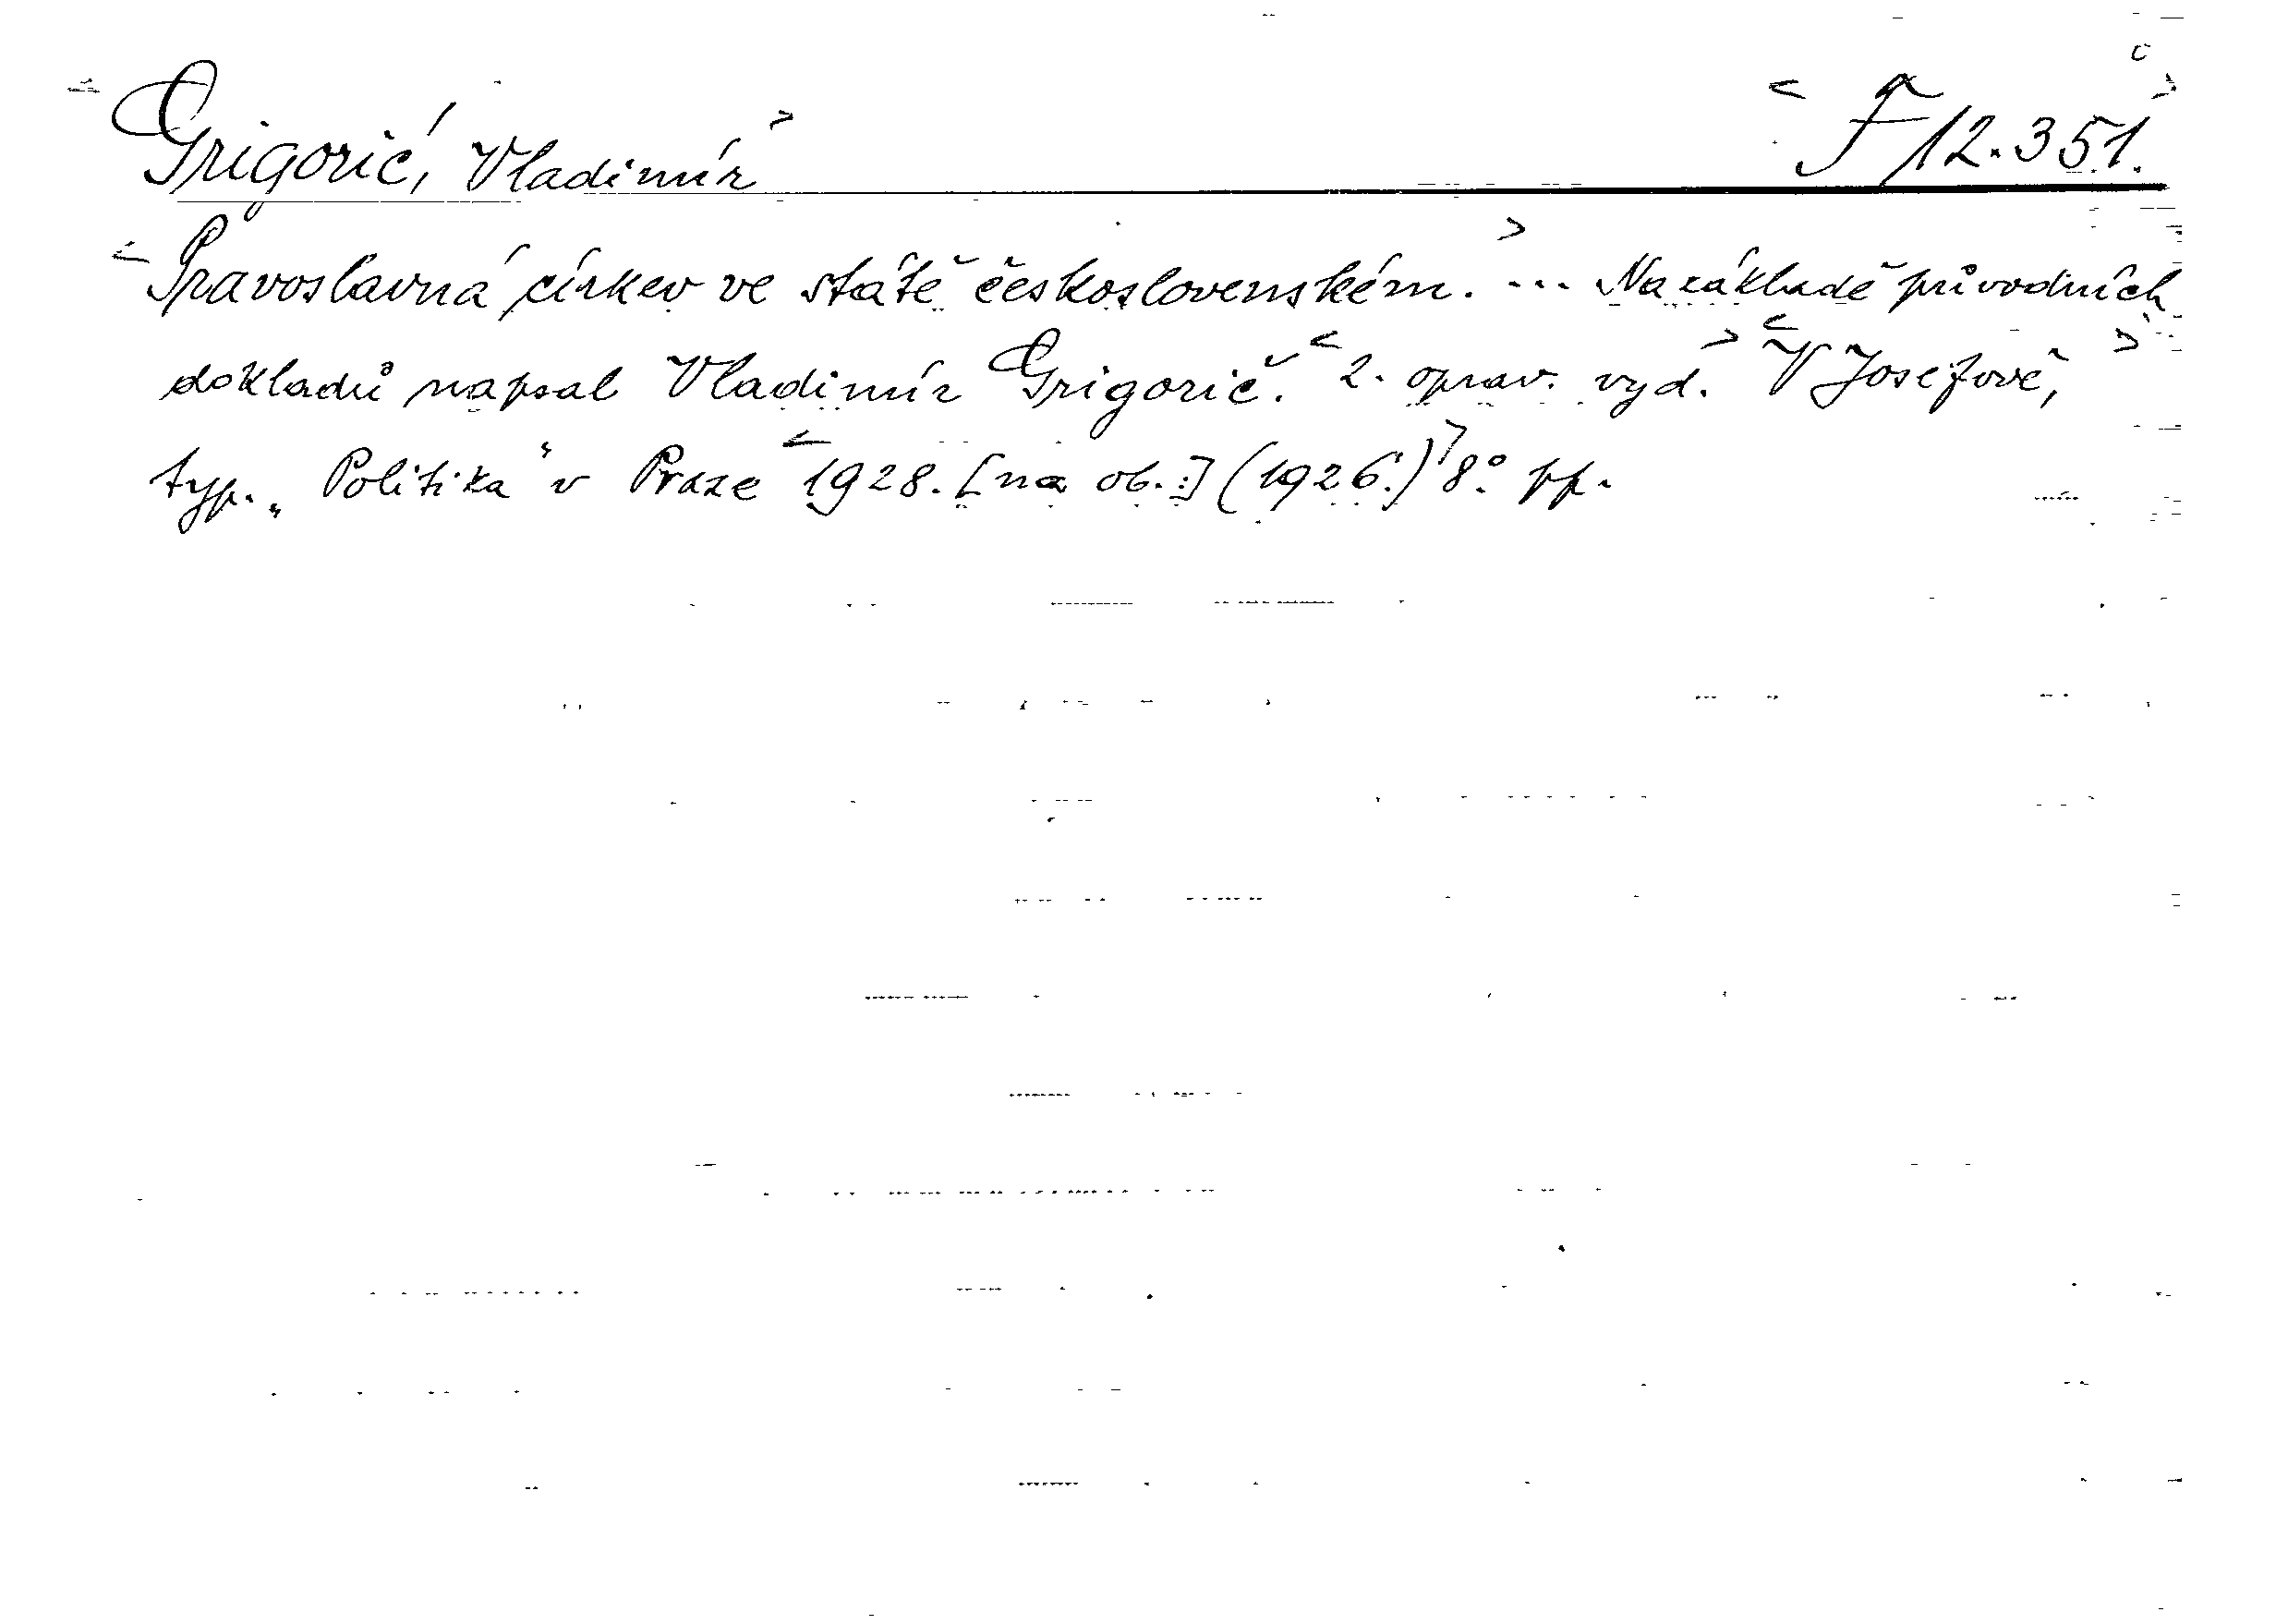 <Grigorić, Vladimír> <F 12.351.>
<Pravoslavná církev ve státě československém.> ... Na základě původních
dokladů napsal Vladimír Grigorič. <2. oprav. vyd.> <V Josefově,>
typ. „Politika“ v Praze <1928. [na ob.:] (1926.)> 8° pp.